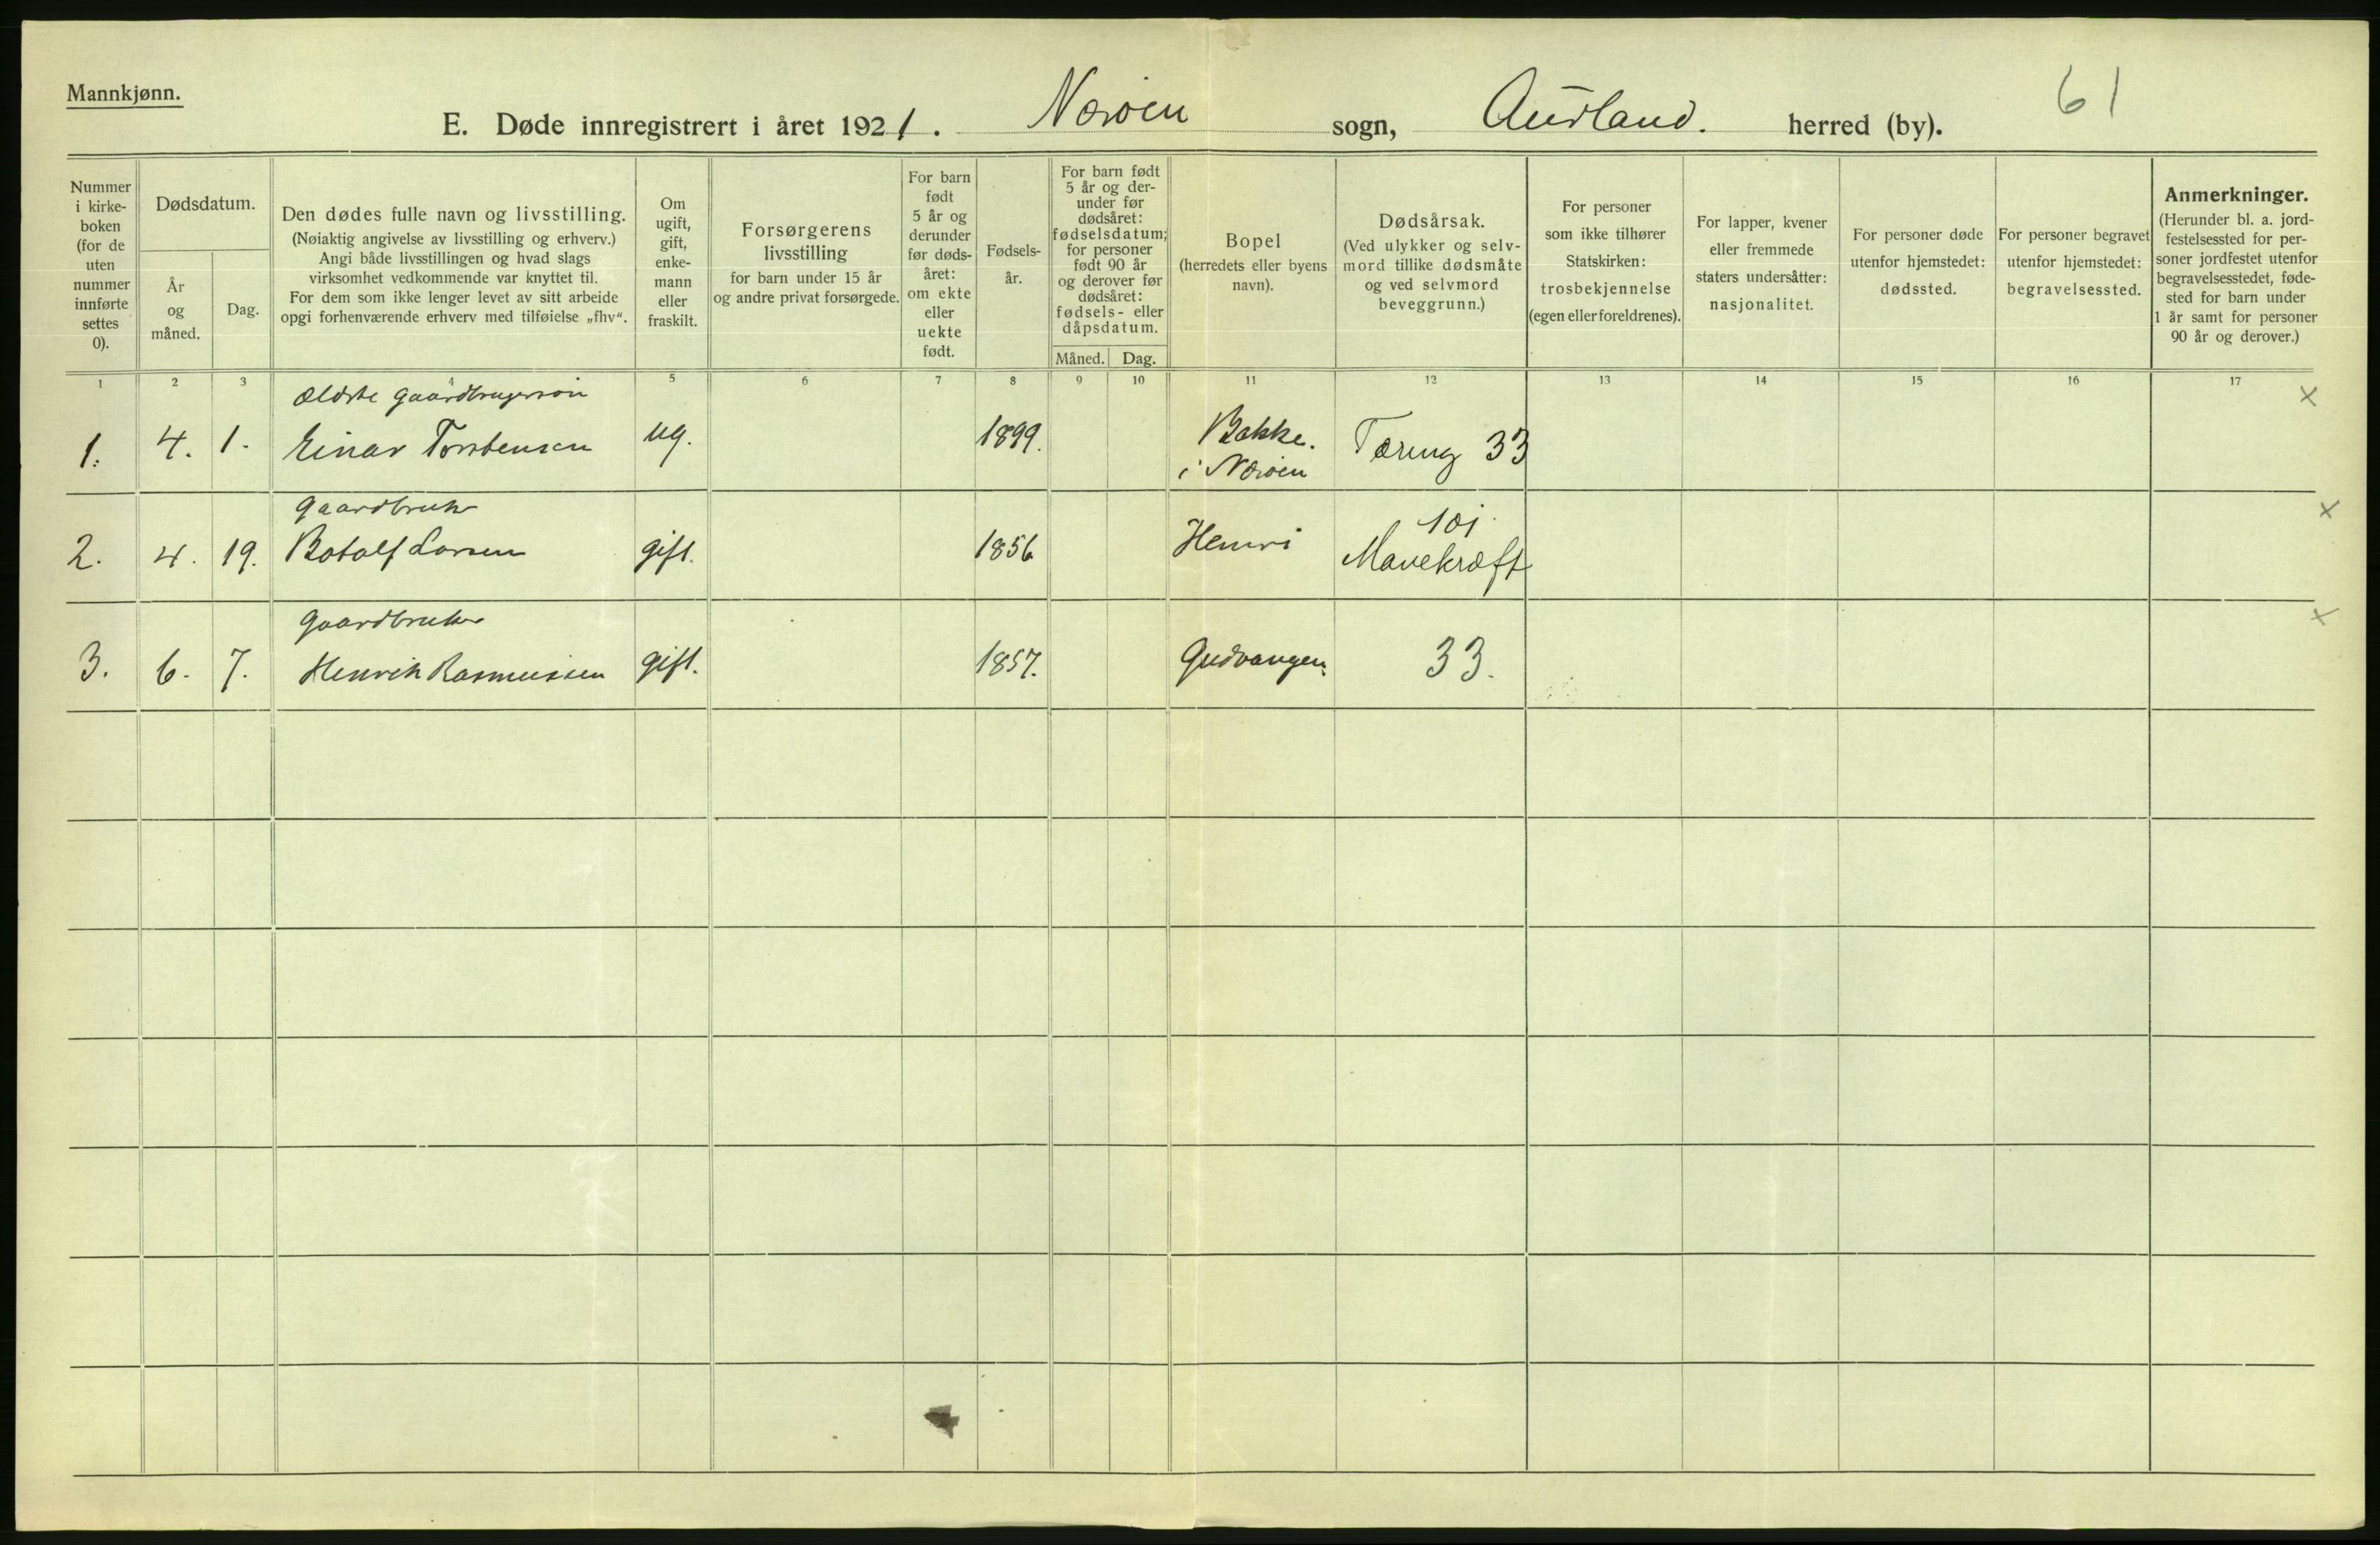 Mannkjønn.
E. Døde innregistrert i året 1921. Nærøen sogn, Aurland. herred (by). 61
Nummer i kirke-boken (for de uten nummer innførte settes 0).
Dødsdatum.
År og måned.
Dag.
Den dødes fulle navn og livsstilling.
(Nøiaktig angivelse av livsstilling og erhverv.)
Angi både livsstillingen og hvad slags
virksomhet vedkommende var knyttet til.
For dem som ikke lenger levet av sitt arbeide
opgi forhenværende erhverv med tilføielse „fhv“.
Om ugift, gift, enke-mann eller fraskilt.
Forsørgerens
livsstilling
for barn under 15 år
og andre privat forsørgede.
For barn født 5 år og derunder før døds-året: om ekte eller uekte født.
Fødsels-år.
For barn født
5 år og der-
under før
dødsåret:
fødselsdatum;
for personer
født 90 år
og derover før
dødsåret:
fødsels- eller
dåpsdatum.
Måned. Dag.
Bopel
(herredets eller byens
navn).
Dødsårsak.
(Ved ulykker og selv-
mord tillike dødsmåte
og ved selvmord
beveggrunn.)
For personer
som ikke tilhører
Statskirken:
trosbekjennelse
(egen eller foreldrenes).
For lapper, kvener
eller fremmede
staters undersåtter:
nasjonalitet.
For personer døde
utenfor hjemstedet:
dødssted.
For personer begravet
utenfor hjemstedet:
begravelsessted.
Anmerkninger.
(Herunder bl. a. jord-
festelsessted for per-
soner jordfestet utenfor
begravelsesstedet, føde-
sted for barn under
1 år samt for personer
90 år og derover.)
1 2 3 4 5 6 7 8 9 10 11 12 13 14 15 16 17
Ældste gaardbrugersøn x
1. 4. 1. Einar Torstensen ug. 1899. Bakke. Tæring 33
i Nærøen
Gaardbruker 101 x
2. 4. 19. Botolf Larsen gift. 1856 Hemri Mavekræft
Gaardbruker x
3. 6. 7. Henrik Rasmussen gift. 1857. Gudvangen. 33.